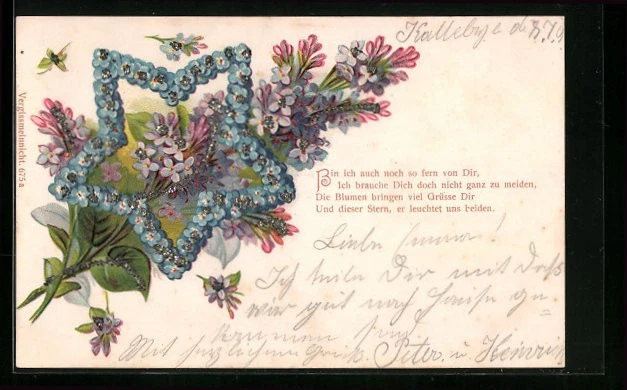 Kallebye d. 7.7.9
Vergissmeinnicht. 675a
Bin ich auch noch so fern von Dir,
Ich brauche Dich doch nicht ganz zu meiden,
Die Blumen bringen viel Grüsse Dir
Und dieser Stern, er leuchtet uns beiden.
Liebe Emma!
Ich teile Dir mit daß
wir gut nach Hause ge-
kommen sind
Mit herzlichem Gruß. Peter u Heinrich